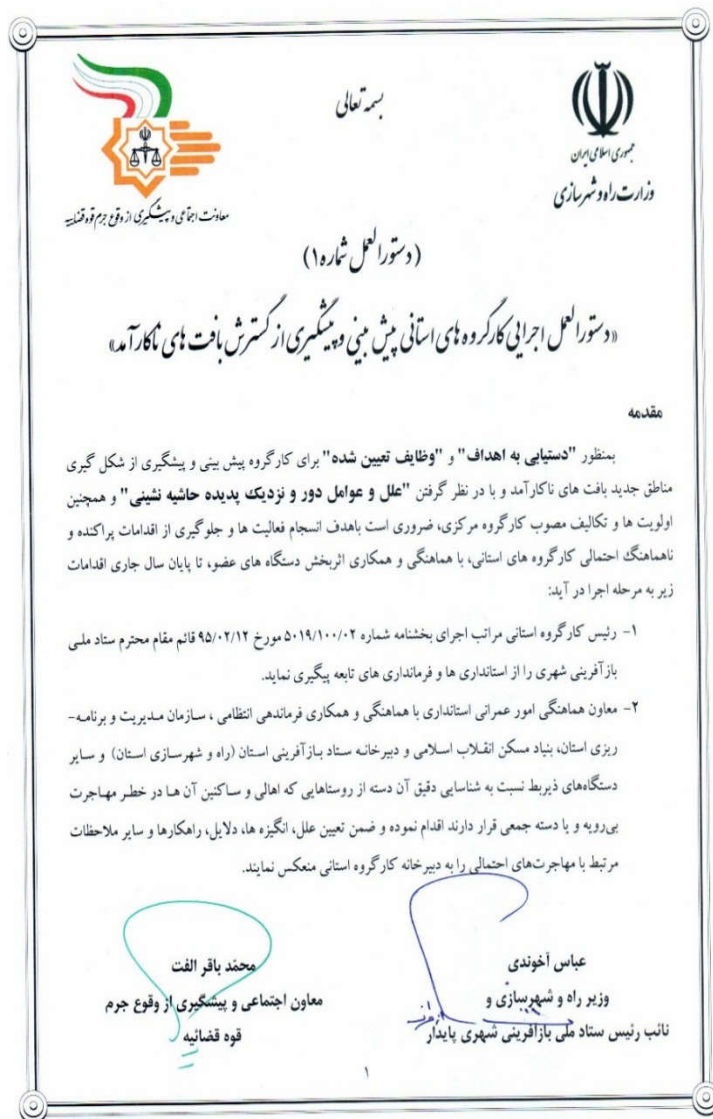 بسمه تعالی
جمهوری اسلامی ایران
وزارت راه و شهرسازی
معاونت اجتماعی و پیشگیری از وقوع جرم قوه قضاییه
(دستورالعمل شماره ۱)
«دستورالعمل اجرایی کارگروه های استانی پیش بینی و پیشگیری از گسترش بافت های ناکارآمد»
مقدمه
بمنظور "دستیابی به اهداف" و "وظایف تعیین شده" برای کارگروه پیش بینی و پیشگیری از شکل گیری
مناطق جدید بافت های ناکارآمد و با در نظر گرفتن "علل و عوامل دور و نزدیک پدیده حاشیه نشینی" و همچنین
اولویت ها و تکالیف مصوب کارگروه مرکزی، ضروری است باهدف انسجام فعالیت ها و جلوگیری از اقدامات پراکنده و
ناهماهنگ احتمالی کارگروه های استانی، با هماهنگی و همکاری اثربخش دستگاه های عضو، تا پایان سال جاری اقدامات
زیر به مرحله اجرا در آید:
۱- رئیس کارگروه استانی مراتب اجرای بخشنامه شماره ۵۰۱۹/۱۰۰/۰۲ مورخ ۹۵/۰۲/۱۲ قائم مقام محترم ستاد ملی
بازآفرینی شهری را از استانداری ها و فرمانداری های تابعه پیگیری نماید.
۲- معاون هماهنگی امور عمرانی استانداری با هماهنگی و همکاری فرماندهی انتظامی ، سازمان مدیریت و برنامه-
ریزی استان، بنیاد مسکن انقلاب اسلامی و دبیرخانه ستاد بازآفرینی استان (راه و شهرسازی استان) و سایر
دستگاه‌های ذیربط نسبت به شناسایی دقیق آن دسته از روستاهایی که اهالی و ساکنین آن ها در خطر مهاجرت
بی‌رویه و یا دسته جمعی قرار دارند اقدام نموده و ضمن تعیین علل، انگیزه ها، دلایل، راهکارها و سایر ملاحظات
مرتبط با مهاجرت‌های احتمالی را به دبیرخانه کارگروه استانی منعکس نمایند.
عباس آخوندی
وزیر راه و شهرسازی و
نائب رئیس ستاد ملی بازآفرینی شهری پایدار
محمّد باقر الفت
معاون اجتماعی و پیشگیری از وقوع جرم
قوه قضائیه
۱